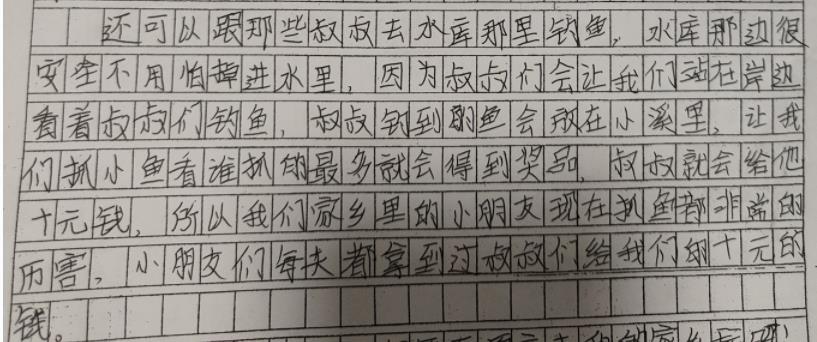 还可以跟那些叔叔去水库那里钓鱼，水库那边很
安全不用怕掉进水里，因为叔叔们会让我们站在岸边
看着叔叔们钓鱼，叔叔钓到的鱼会放在小溪里，让我
们抓小鱼看谁抓的最多就会得到奖品，叔叔就会给他
十元钱，所以我们家乡里的小朋友现在抓鱼都非常的
历害，小朋友们每天都拿到过叔叔们给我们的十元的
钱。